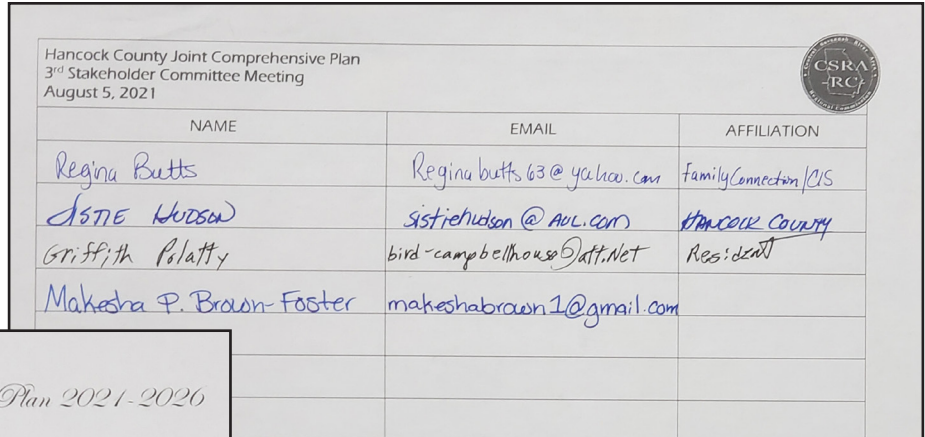 Hancock County Joint Comprehensive Plan
3rd Stakeholder Committee Meeting
August 5, 2021
CSRA
RC
Regional Commission
NAME EMAIL AFFILIATION
Regina Butts Reginabutts63@yahoo.com Family Connection/CIS
SISTIE HUDSON sistiehudson@AOL.com HANCOCK COUNTY
Griffith Polatty bird-campbellhouse@att.Net Resident
Makesha P. Brown-Foster makeshabrown1@gmail.com
Plan 2021-2026